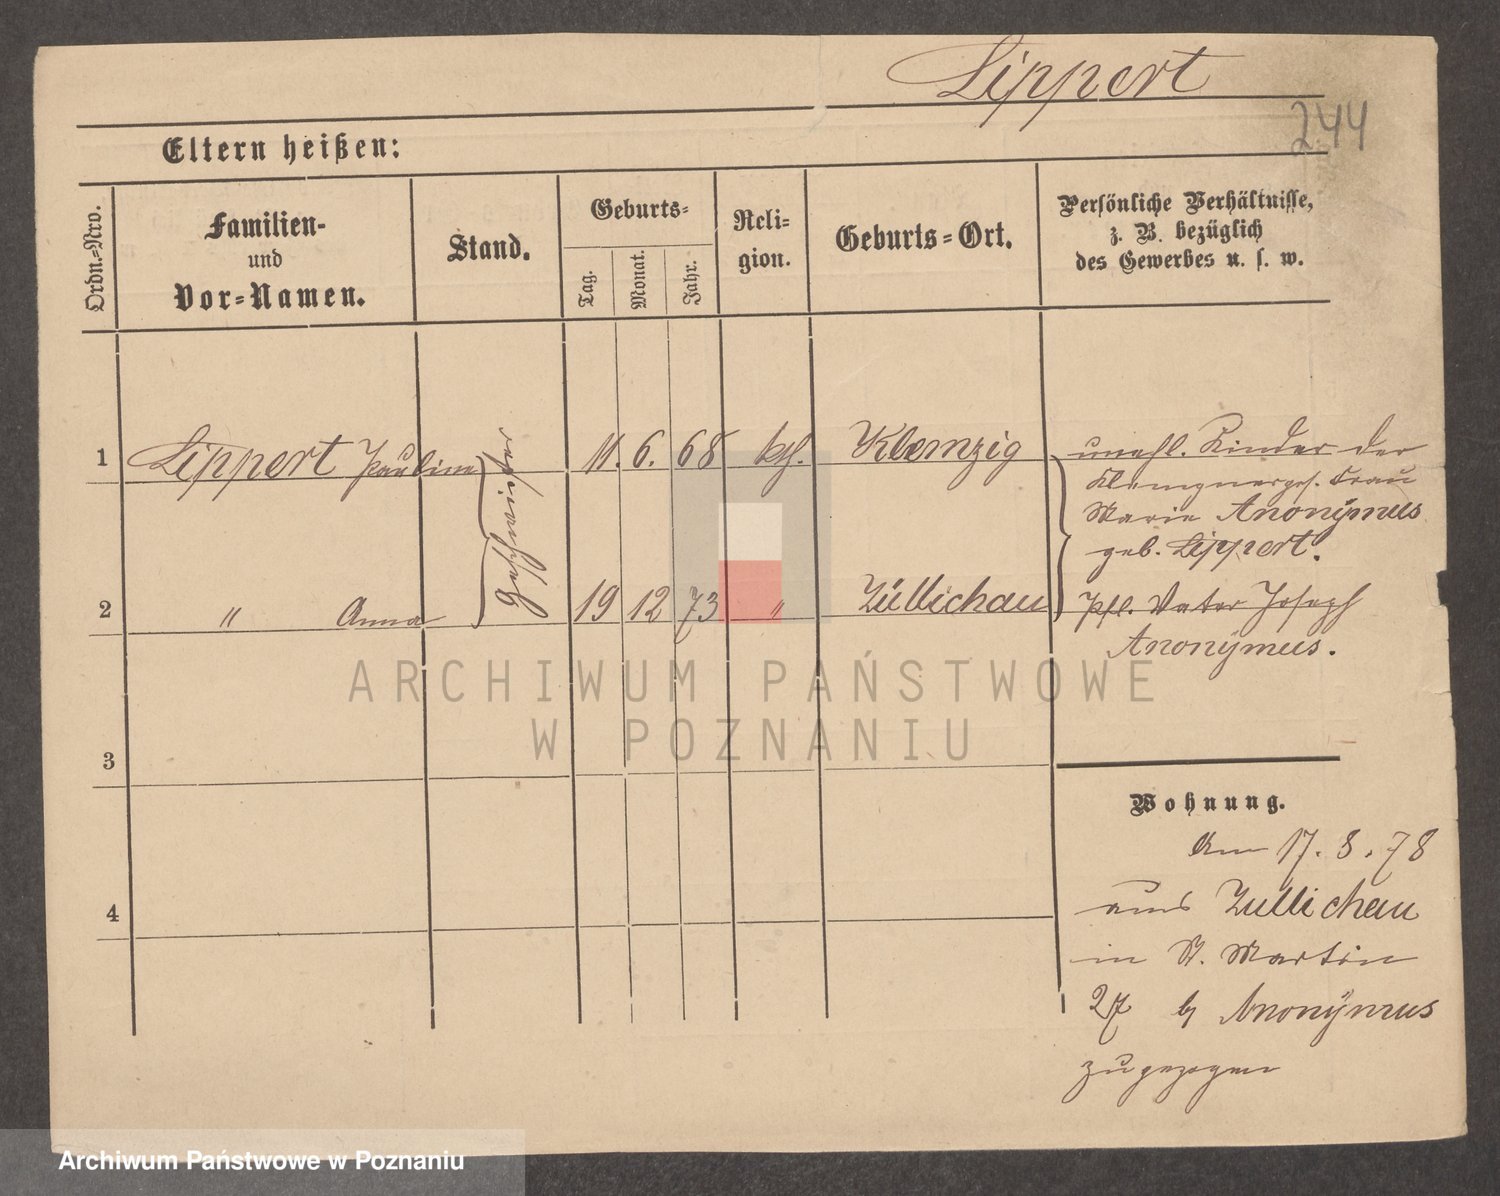 Lippert
244
Eltern heißen:
Ordn.-Nro.
Familien-
und
Vor-Namen.
Stand.
Geburts-
Tag.
Monat.
Jahr.
Reli-
gion.
Geburts-Ort.
Persönliche Verhältnisse,
z. B. bezüglich
des Gewerbes u. s. w.
1 Lippert Pauline 11. 6. 68 kth. Klemzig
Geschwister
unehl. Kinder der
Klempnerges. Frau
Marie Anonÿmus
geb. Lippert.
2 " Anna 19 12 73 " Züllichau
Pfl. Vater Joseph
Anonÿmus.
3
4
Wohnung.
Am 17. 8. 78
aus Züllichau
in St. Martin
27 b/ Anonÿmus
zugezogen
ARCHIWUM PAŃSTWOWE
W POZNANIU
Archiwum Państwowe w Poznaniu